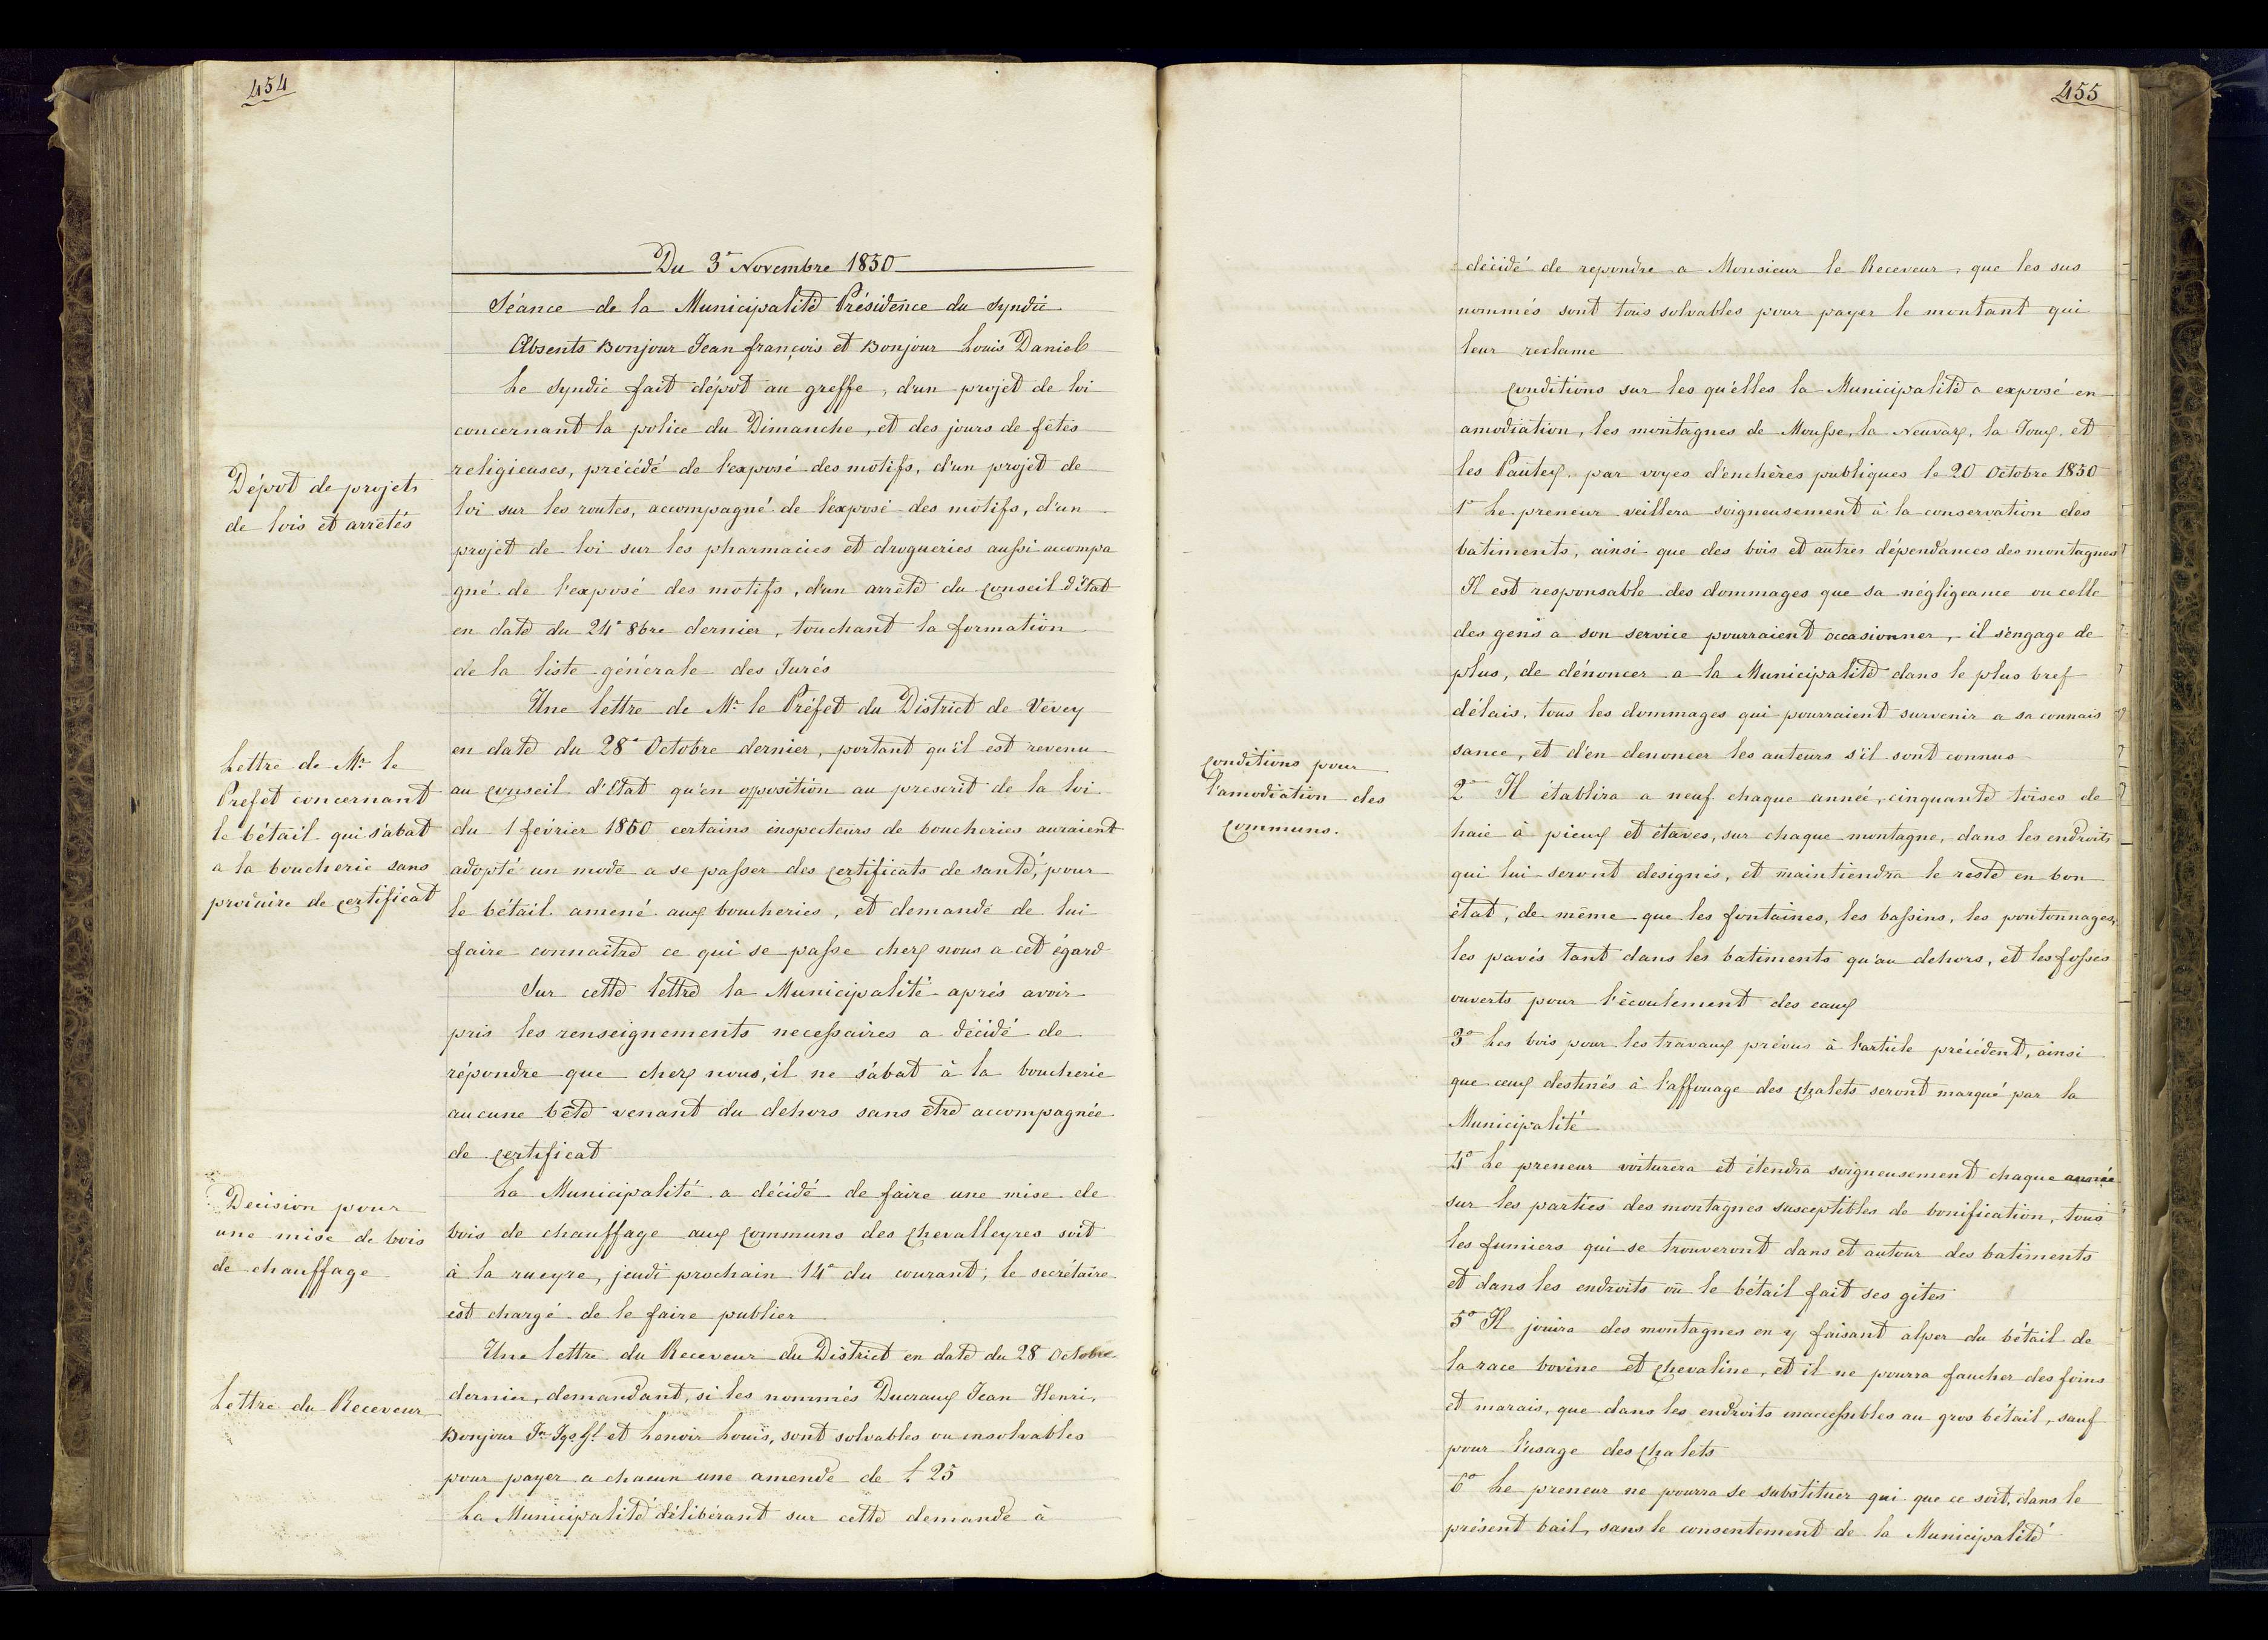 454
Du 3e Novembre 1850
Séance de la Municipalité Présidence du Syndic
Absents Bonjour Jean françois et Bonjour Louis Daniel
Le Syndic fait dépôt au greffe, d'un projet de loi
concernant la police du Dimanche, et des jours de fêtes
religieuses, précédé de l'exposé des motifs, d'un projet de
loi sur les routes, accompagné de l'exposé des motifs, d'un
projet de loi sur les pharmacies et drogueries aussi accompa
gné de l'exposé des motifs, d'un arrêté du Conseil d'état
en date du 24e 8bre dernier, touchant la formation
de la liste générale des Jurés
Dépot de projets
de lois et arrêtés
Une lettre de Mr le Préfet du District de Vevey
en date du 28e Octobre dernier, portant qu'il est revenu
au Conseil d'Etat qu'en opposition au prescrit de la loi
du 1 février 1850 certains inspecteurs de boucheries auraient
adopté un mode a se passer des Certificats de santé, pour
le bétail amené aux boucheries, et demande de lui
faire connaître ce qui se passe chez nous a cet égard
Lettre de Mr le
Prefet concernant
le bétail qui s'abat
a la boucherie sans
produire de Certificat
Sur cette lettre la Municipalité aprés avoir
pris les renseignements necessaires a décidé de
répondre que chez nous, il ne s'abat à la boucherie
aucune bête venant du dehors sans être accompagnée
de Certificat
La Municipalité a décidé de faire une mise de
bois de chauffage aux Communs des Chevalleyres soit
à la rueyre, jeudi prochain 14e du courant, le secrétaire
est chargé de le faire publier
Decision pour
une mise de bois
de chauffage
Une lettre du Receveur du District en date du 28 Octobre
dernier, demandant, si les nommés Ducraux Jean Henri,
Bonjour Jn et Lenoir Louis, sont solvables ou insolvables
pour payer a chacun une amende de f 25
La Municipalité délibérant sur cette demande à
Lettre du Receveur
455
décidé de repondre a Monsieur le Receveur, que les sus
nommés sont tous solvables pour payer le montant qui
leur reclame
Conditions sur les qu'elles la Municipalité a exposé en
amodiation, les montagnes de Mousse, la Neuvaz, la Joux, et
les Pautex, par voyes d'enchères publiques le 20 Octobre 1850
1o Le preneur veillera soigneusement à la conservation des
batiments, ainsi que des bois et autres dépendances des montagnes
Il est responsable des dommages que sa négligeance ou celle
des gens a son service pourraient occasionner, il s'engage de
plus, de dénoncer a la Municipalité dans le plus bref
délais, tous les dommages qui pourraient survenir a sa connais
sance, et d'en denoncer les auteurs s'il sont connus
Conditions pour
l'amodiation des
Communs.
2o Il établira a neuf chaque année, cinquante toises de
haie à pieux et étaves, sur chaque montagne, dans les endroits
qui lui seront designés, et maintiendra le reste en bon
état, de même que les fontaines, les bassins, les pontonnages,
les pavés tant dans les batiments qu'au dehors, et les fossés
ouverts pour l'écoulement des eaux
3o Les bois pour les travaux prévus à l'article précédent, ainsi
que ceux destinés à l'affouage des Chalets seront marqué par la
Municipalité
4o Le preneur voiturera et étendra soigneusement chaque année
sur les parties des montagnes susceptibles de bonification, tous
les fumiers qui se trouveront dans et autour des batiments
et dans les endroits où le bétail fait ses gites
5o Il jouira des montagnes en y faisant alper du bétail de
la race bovine et Chevaline, et il ne pourra faucher des foins
et marais, que dans les endroits inaccessibles au gros bétail, sauf
pour l'usage des Chalets
6o Le preneur ne pourra se substituer qui que ce soit, dans le
présent bail, sans le consentement de la Municipalité